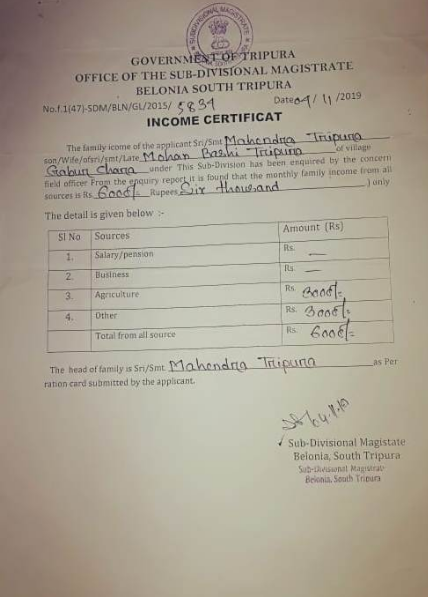 SUBDIVISIONAL MAGISTRATE
GOVERNMENT OF TRIPURA
OFFICE OF THE SUB-DIVISIONAL MAGISTRATE
BELONIA SOUTH TRIPURA
No.f.1(47)-SDM/BLN/GL/2015/ 5831 Date 04/11/2019
INCOME CERTIFICAT
The family icome of the applicant Sri/Smt Mahendra Tripura
son/Wife/ofsri/smt/Late Mohan Bashi Tripura of village
Gabur Chara under This Sub-Division has been enquired by the concern
field officer From the enquiry report it is found that the monthly family income from all
sources is Rs. 6000/- Rupees Six thousand ) only
The detail is given below :-
Sl No Sources Amount (Rs)
1. Salary/pension Rs. —
2. Business Rs —
3. Agriculture Rs. 3000/-
4. Other Rs. 3000/-
Total from all source Rs. 6000/-
The head of family is Sri/Smt Mahendra Tripura as Per
ration card submitted by the applicant.
Sub-Divisional Magistate
Belonia, South Tripura
Sub-Divisional Magistrate
Belonia, South Tripura